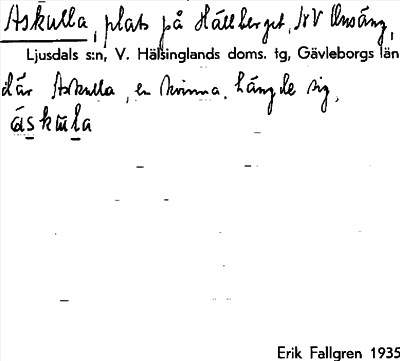 Askulla, plats på Hällberget, NV Onsäng,
Ljusdals s:n, V. Hälsinglands doms. tg, Gävleborgs län
där Askulla, en kvinna, hängde sig.
áskùla
Erik Fallgren 1935